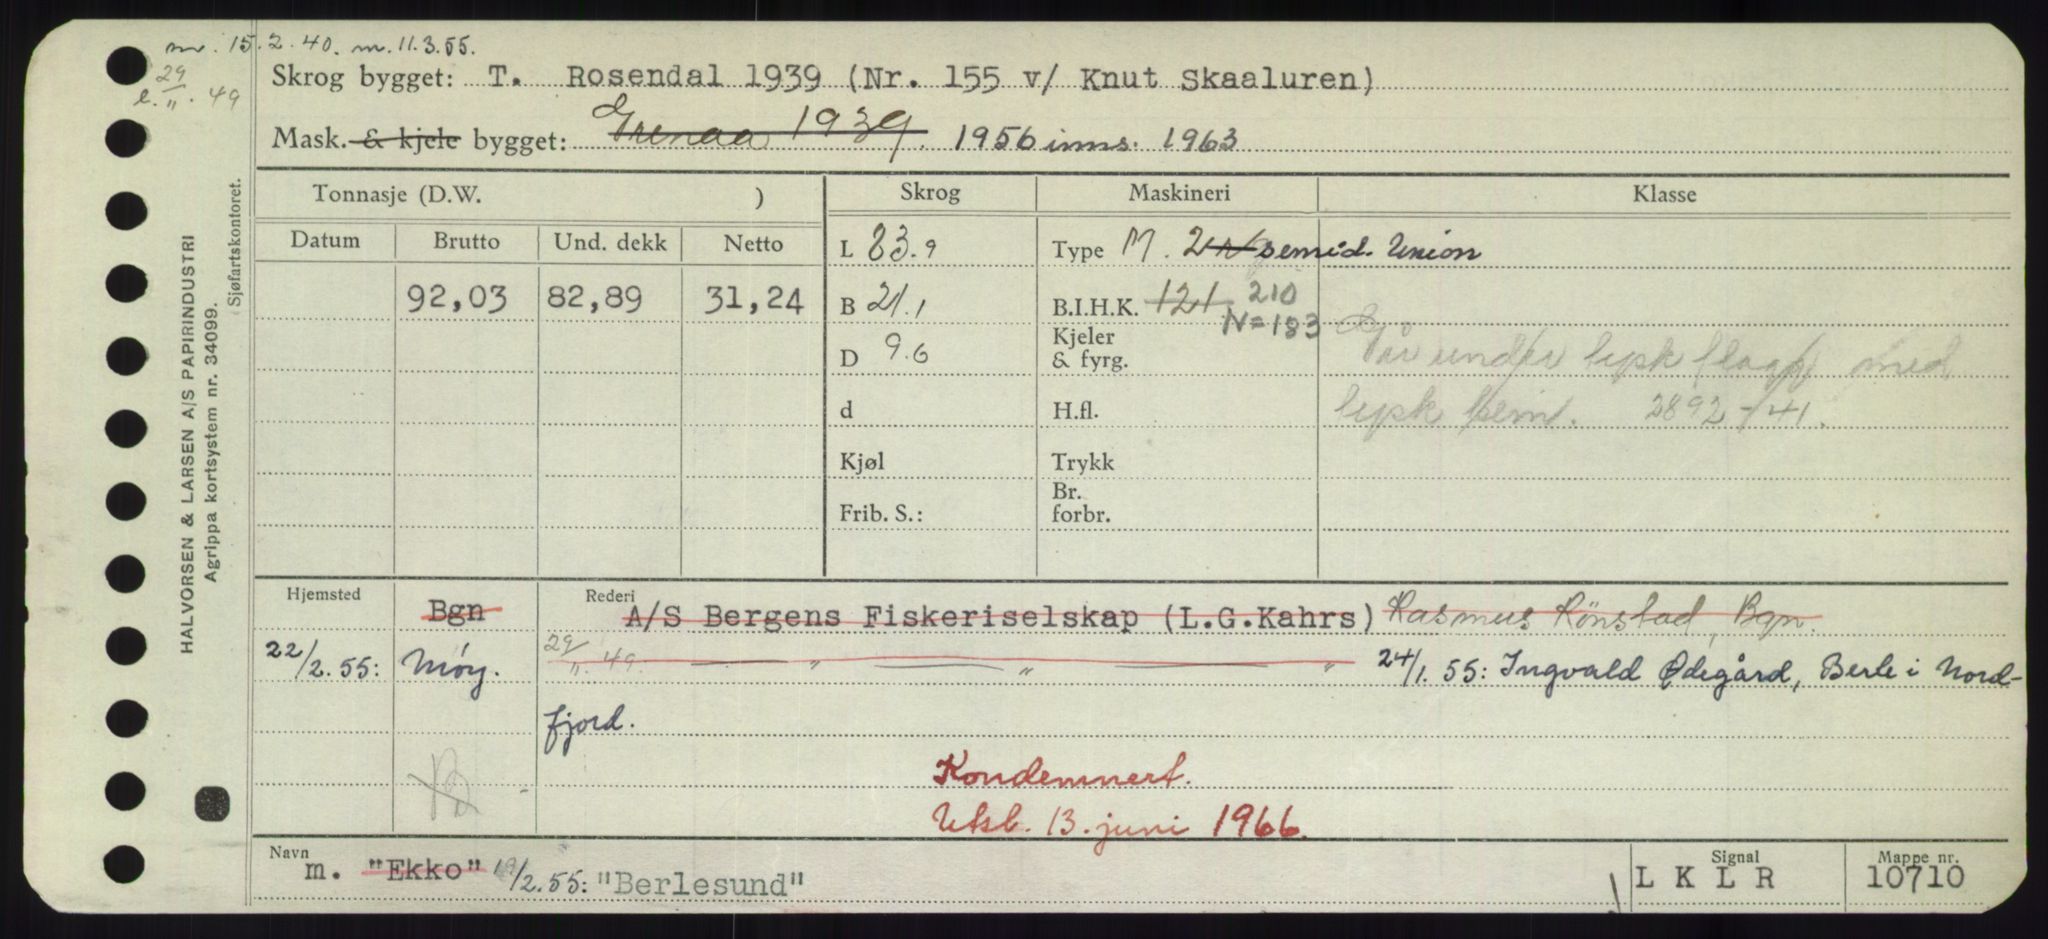 m. 15.2.40. m. 11.3.55.
e. 29/11. 49
Skrog bygget: T. Rosendal 1939 (Nr. 155 v/ Knut Skaaluren)
Mask. & kjele bygget: Grenaa 1939. 1956 inns. 1963
HALVORSEN & LARSEN A/S PAPIRINDUSTRI
Agrippa kortsystem nr. 34099.
Sjøfartskontoret.
Tonnasje (D.W. ) Skrog Maskineri Klasse
Datum Brutto Und. dekk Netto
92,03 82,89 31,24
L 83.9
B 21.1
D 9.6
d
Kjøl
Frib. S.:
Type M. 2 semid. Union
B.I.H.K. 121 210
N=183
Kjeler
& fyrg.
H.fl.
Trykk
Br.
forbr.
Går under tysk flagg med
tysk bem. 2892-41.
Hjemsted Bgn Rederi A/S Bergens Fiskeriselskap (L.G.Kahrs) Rasmus Rönstad, Bgn.
22/2.55: Møy. 29/11. 49. — " — " — " 24/1. 55: Ingvald Ødegård, Berle i Nord-
fjord.
Kondemnert.
Utsb. 13. juni 1966.
Navn m. "Ekko" 19/2.55: "Berlesund"
Signal L K L R
Mappe nr. 10710